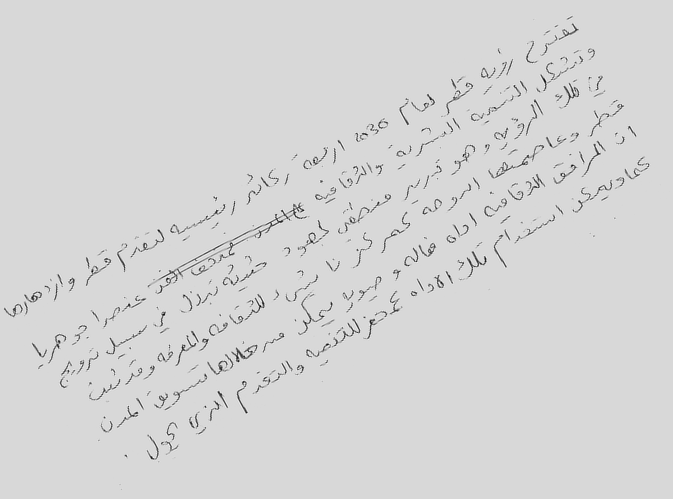 تقترح رؤيه قطر لعام 2030 اربعة ركائز رئيسيه لتقدم قطر وازدهارها
وتشكل التنمية البشرية والثقافيه عنصرا جوهريا
في تلك الرؤيه وهو تبرير منطقي لجهود حثيثه تبذل في سبيل ترويج
قطر وعاصمتها الدوحه كمركز ناشئ للثقافه والمعرفه وقد تبين
ان المرافق الثقافيه اداه فعاله وحيويه يمكن من خلالها تسويق المدن
كما ويمكن استخدام تلك الاداه كمحفز للتنميه والتقدم الذي